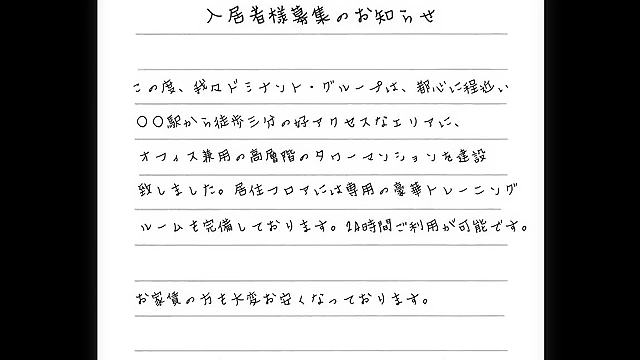 入居者様募集のお知らせ
この度、我々ドミナント・グループは、都心に程近い
〇〇駅から徒歩三分の好アクセスなエリアに、
オフィス兼用の高層階のタワーマンションを建設
致しました。居住フロアには専用の豪華トレーニング
ルームも完備しております。24時間ご利用が可能です。
お家賃の方も大変お安くなっております。